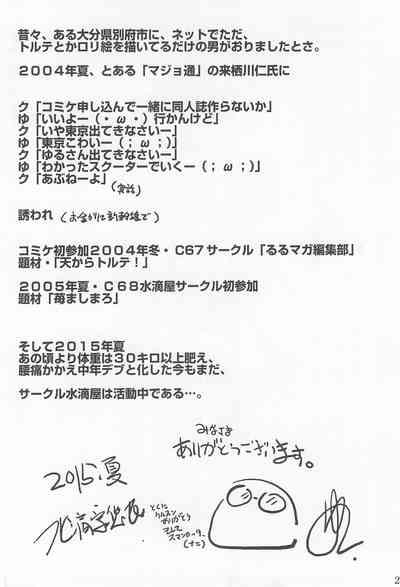 昔々、ある大分県別府市に、ネットでただ、
トルテとかロリ絵を描いてるだけの男がおりましたとさ。
2004年夏、とある「マジョ通」の来栖川仁氏に
ク「コミケ申し込んで一緒に同人誌作らないか」
ゆ「いいよー（・ω・）行かんけど」
ク「いや東京出てきなさいー」
ゆ「東京こわいー（；ω；）」
ク「ゆるさん出てきなさいー」
ゆ「わかったスクーターでいくー（；ω；）」
ク「あぶねーよ」
（実話）
誘われ
コミケ初参加2004年冬・C67サークル「るるマガ編集部」
題材・「天からトルテ！」
2005年夏・C68水滴屋サークル初参加
題材「苺ましまろ」
そして2015年夏
あの頃より体重は30キロ以上肥え、
腰痛かかえ中年デブと化した今もまだ、
サークル水滴屋は活動中である…。
みなさま
ありがとうございます。
2015.夏
とくに
ありがとう
そして
2